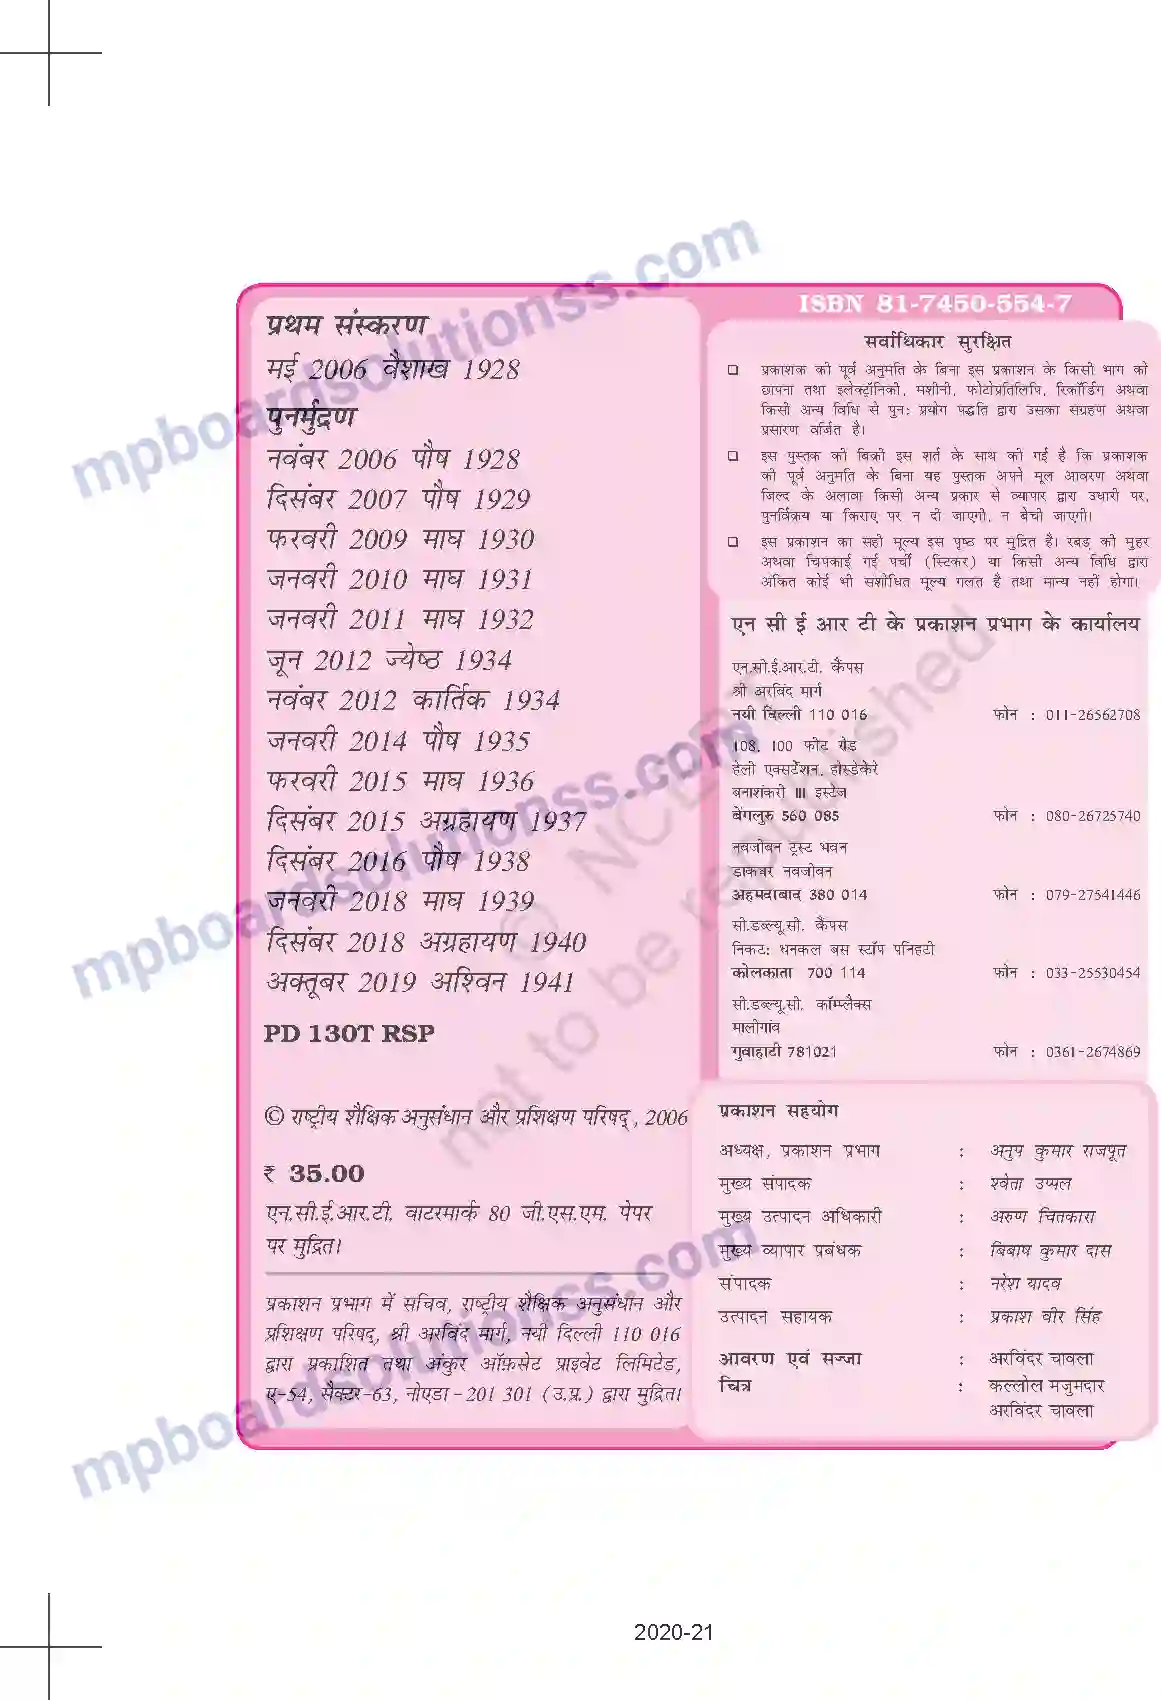 ISBN 81-7450-554-7
प्रथम संस्करण
मई 2006 वैशाख 1928
पुनर्मुद्रण
नवंबर 2006 पौष 1928
दिसंबर 2007 पौष 1929
फरवरी 2009 माघ 1930
जनवरी 2010 माघ 1931
जनवरी 2011 माघ 1932
जून 2012 ज्येष्ठ 1934
नवंबर 2012 कार्तिक 1934
जनवरी 2014 पौष 1935
फरवरी 2015 माघ 1936
दिसंबर 2015 अग्रहायण 1937
दिसंबर 2016 पौष 1938
जनवरी 2018 माघ 1939
दिसंबर 2018 अग्रहायण 1940
अक्तूबर 2019 अश्विन 1941
PD 130T RSP
© राष्ट्रीय शैक्षिक अनुसंधान और प्रशिक्षण परिषद्, 2006
₹ 35.00
एन.सी.ई.आर.टी. वाटरमार्क 80 जी.एस.एम. पेपर
पर मुद्रित।
प्रकाशन प्रभाग में सचिव, राष्ट्रीय शैक्षिक अनुसंधान और
प्रशिक्षण परिषद्, श्री अरविंद मार्ग, नयी दिल्ली 110 016
द्वारा प्रकाशित तथा अंकुर ऑफ़सेट प्राइवेट लिमिटेड,
ए-54, सैक्टर-63, नोएडा-201 301 (उ.प्र.) द्वारा मुद्रित।
सर्वाधिकार सुरक्षित
❑ प्रकाशक की पूर्व अनुमति के बिना इस प्रकाशन के किसी भाग को
छापना तथा इलेक्ट्रॉनिकी, मशीनी, फोटोप्रतिलिपि, रिकॉर्डिंग अथवा
किसी अन्य विधि से पुन: प्रयोग पद्धति द्वारा उसका संग्रहण अथवा
प्रसारण वर्जित है।
❑ इस पुस्तक की बिक्री इस शर्त के साथ की गई है कि प्रकाशक
की पूर्व अनुमति के बिना यह पुस्तक अपने मूल आवरण अथवा
जिल्द के अलावा किसी अन्य प्रकार से व्यापार द्वारा उधारी पर,
पुनर्विक्रय या किराए पर न दी जाएगी, न बेची जाएगी।
❑ इस प्रकाशन का सही मूल्य इस पृष्ठ पर मुद्रित है। रबड़ की मुहर
अथवा चिपकाई गई पर्ची (स्टिकर) या किसी अन्य विधि द्वारा
अंकित कोई भी संशोधित मूल्य गलत है तथा मान्य नहीं होगा।
एन सी ई आर टी के प्रकाशन प्रभाग के कार्यालय
एन.सी.ई.आर.टी. कैंपस
श्री अरबिंद मार्ग
नयी दिल्ली 110 016 फोन : 011-26562708
108, 100 फीट रोड
हेली एक्सटेंशन, होस्डेकेरे
बनाशंकरी III इस्टेज
बेंगलुरु 560 085 फोन : 080-26725740
नवजीवन ट्रस्ट भवन
डाकघर नवजीवन
अहमदाबाद 380 014 फोन : 079-27541446
सी.डब्ल्यू.सी. कैंपस
निकट: धनकल बस स्टॉप पनिहटी
कोलकाता 700 114 फोन : 033-25530454
सी.डब्ल्यू.सी. कॉम्प्लैक्स
मालीगांव
गुवाहाटी 781021 फोन : 0361-2674869
प्रकाशन सहयोग
अध्यक्ष, प्रकाशन प्रभाग : अनुप कुमार राजपूत
मुख्य संपादक : श्वेता उप्पल
मुख्य उत्पादन अधिकारी : अरुण चितकारा
मुख्य व्यापार प्रबंधक : बिबाष कुमार दास
संपादक : नरेश यादव
उत्पादन सहायक : प्रकाश वीर सिंह
आवरण एवं सज्जा : अरविंदर चावला
चित्र : कल्लोल मजुमदार
अरविंदर चावला
© NCERT
not to be republished
mpboardsolutionss.com
mpboardsolutionss.com
mpboardsolutionss.com
2020-21